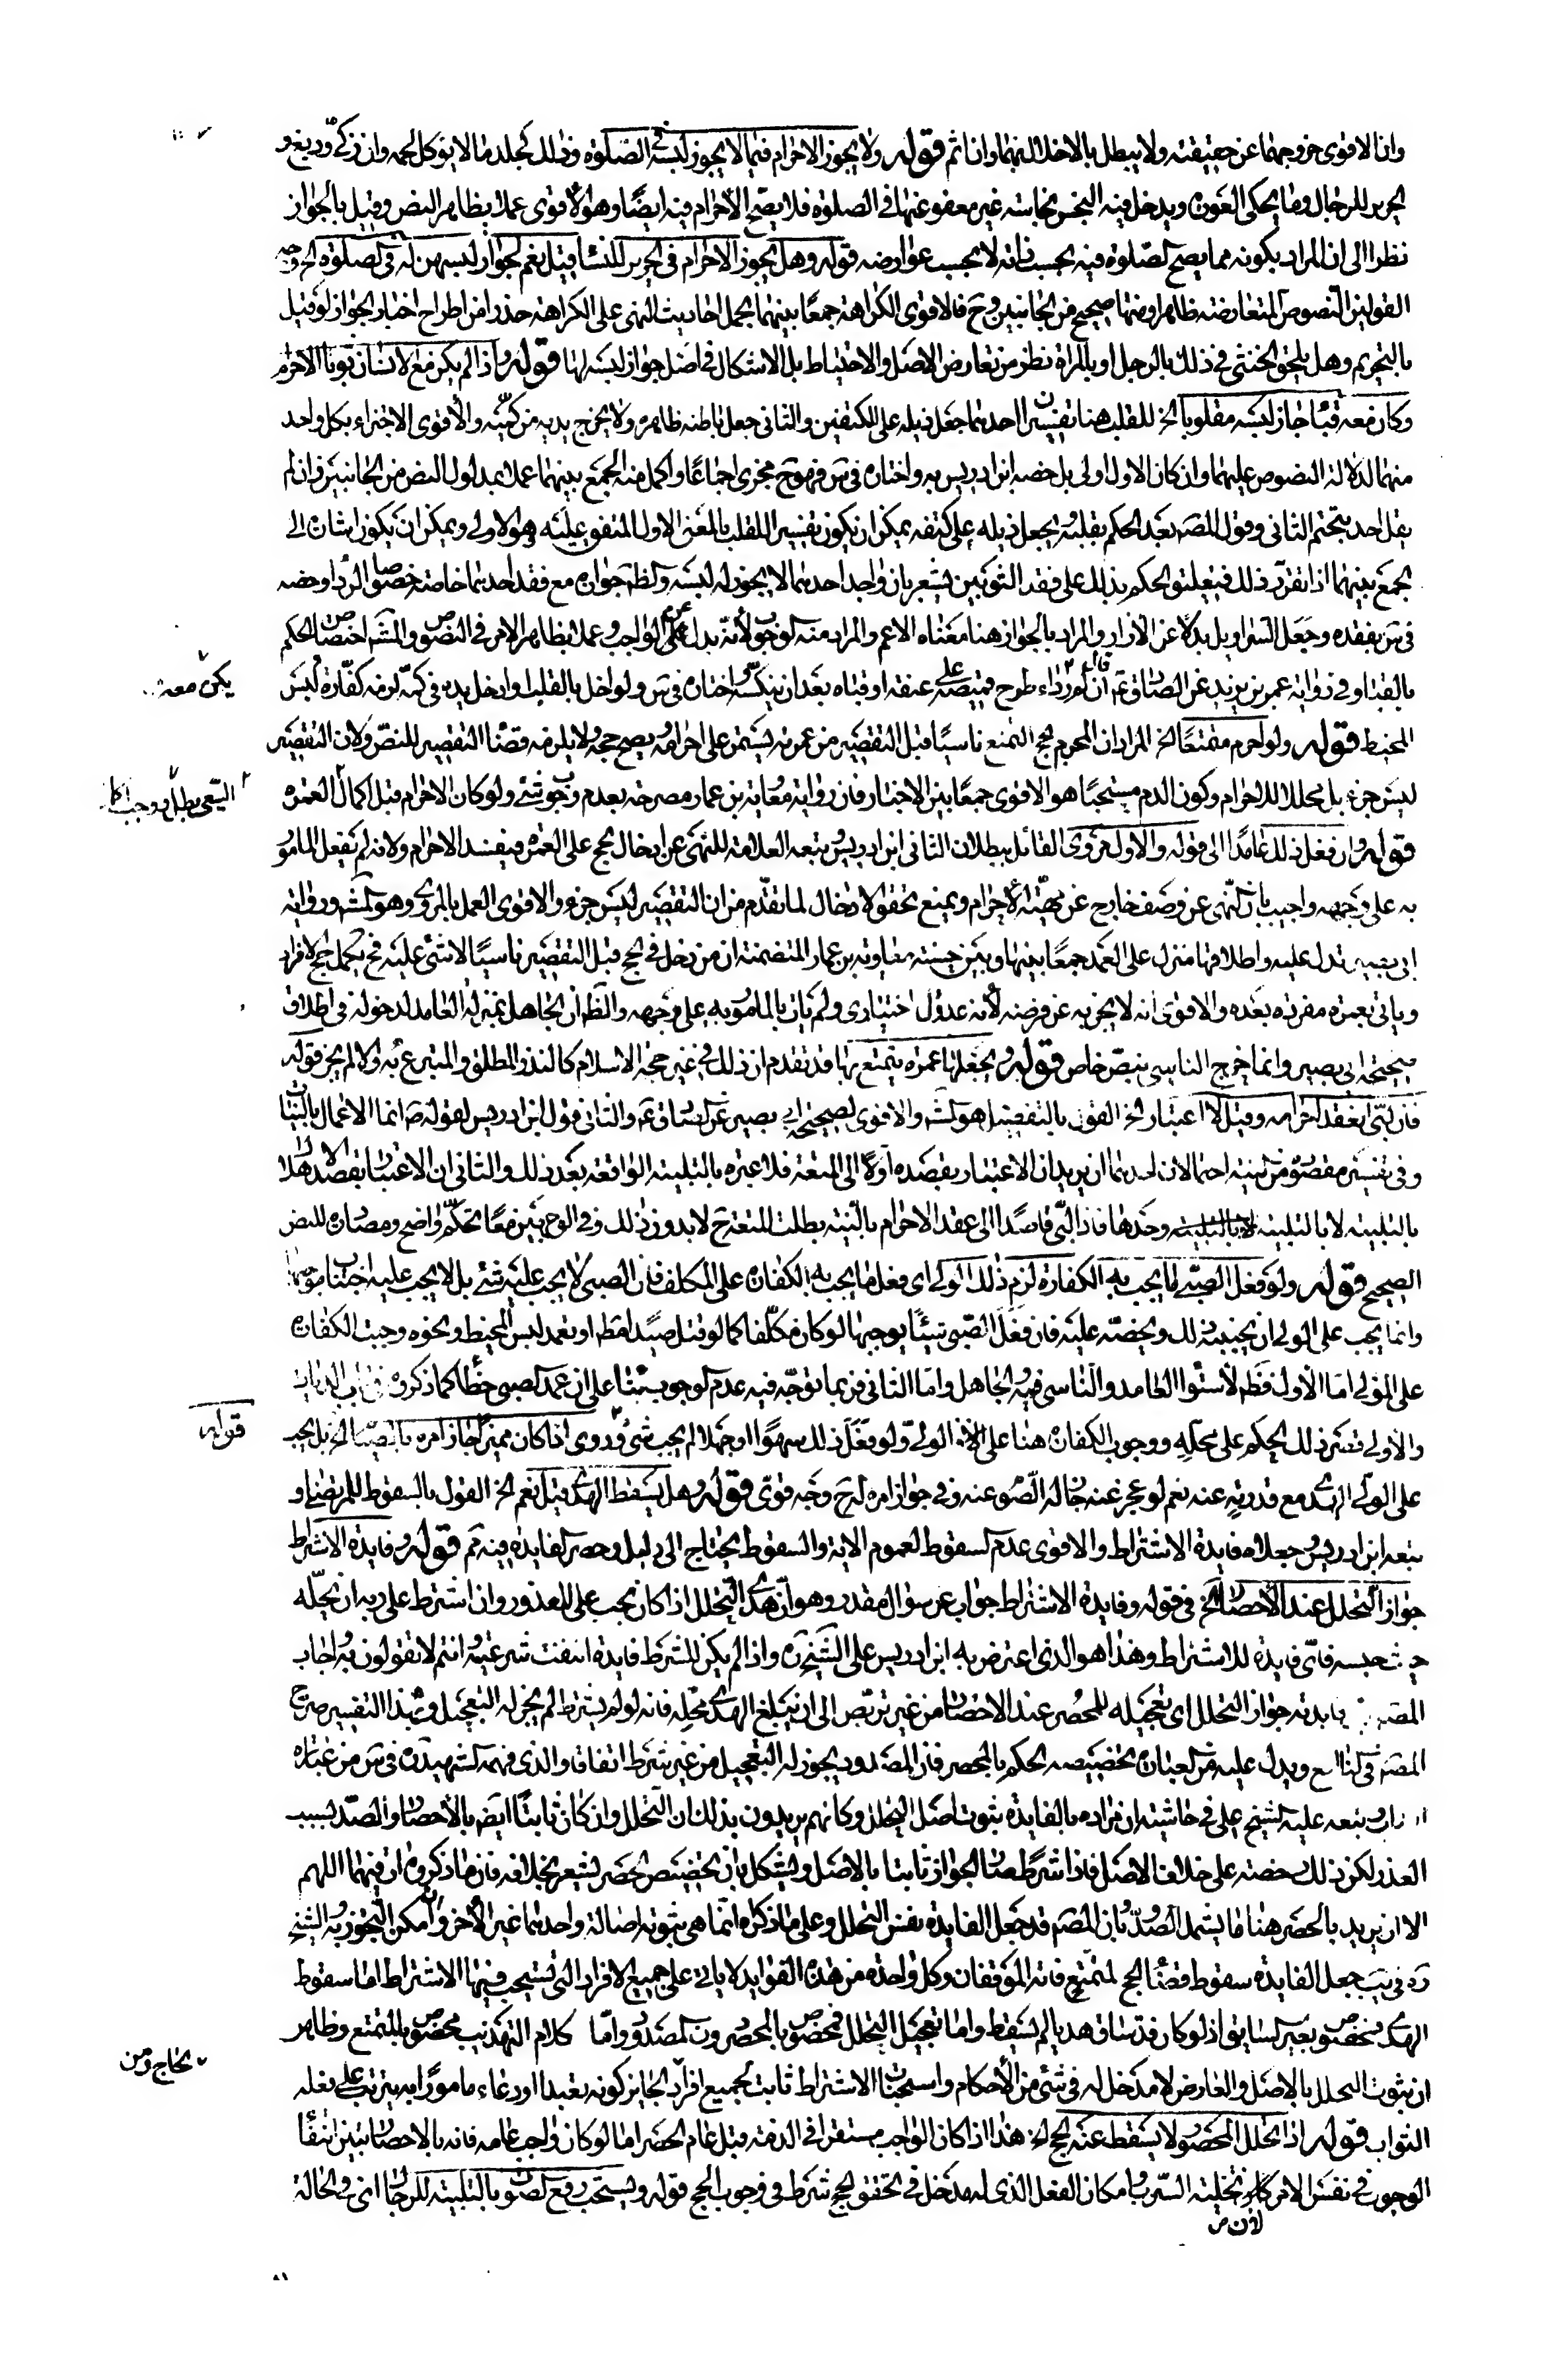 وان الاقوى خروجهما عن حقيقته ولا يبطل بالاخلال بهما وان اثم قوله ولا يجوز الاحرام فيما لا يجوز لبسه في الصلوة وذلك كجلد ما لا يؤكل لحمه وان ذكّي ودبغ و
الحرير للرجال وما يحكى العورة ويدخل فيه النجس نجاسة غير معفو عنها في الصلوة فلا يصح الاحرام فيه ايضًا وهو الاقوى عملا بظاهر النص وقيل بالجواز
نظرا الى ان المراد بكونه مما يصح الصلوة فيه بحسب ذاته لا بحسب عوارضه قوله وهل يجوز الاحرام في الحرير للنساء قيل نعم لجواز لبسهن له في الصلوة الخ وجه
القولين النصوص المتعارضة ظاهرا ومنها صحيح من الجانبين وح فالاقوى الكراهة جمعًا بينهما بحمل احاديث النهى على الكراهة حذرا من اطراح اخبار الجواز لو قيل
بالتحريم وهل يلحق الخنثى في ذلك بالرجل او بالمراة نظر من تعارض الاصل والاحتياط بل الاشكال في اصل جواز لبسه لها قوله واذا لم يكن مع الانسان ثوبا الاحرام
وكان معه قباء جاز لبسه مقلوبا الخ للقلب هنا تفسيران احدهما جعل ذيله على الكتفين والثانى جعل باطنه ظاهره ولا يخرج يديه من كميّه والاقوى الاجتزاء بكل واحد
منهما لدلالة النصوص عليهما وان كان الاول اولى بل خصه ابن ادريس به واختاره في س فهو ح مجزى اجماعًا واكمل منه الجمع بينهما عملا بمدلول النص من الجانبين فان لم
يقل احد بتحتم الثانى وقول المصه بعد الحكم بقلبه يجعل ذيله على كتفه يمكن ان يكون تفسير اللقلب بالمعنى الاول المتفق عليه وهو الاولى ويمكن ان يكون اشارة الى
الجمع بينهما اذا تقرر ذلك فتعليق الحكم بذلك على فقد الثوبين يشعر بان واجد احدهما لا يجوز له لبسه والظ جوازه مع فقد احدهما خاصة خصوصا الرداء وخصه
في س بفقده وجعل السراويل بدلا عن الازار والمراد بالجواز هنا معناه الاعم والمراد منه الوجوب لانه بدل عن الواجب وعملا بظاهر الامر في النصوص والمشه اختصاص الحكم
بالقباء وفي رواية عمر بن يزيد عن الصادق ع ان لم رداء طرح قميصه على عنقه او قباه بعد ان ينكسه واختاره في س ولو اخل بالقلب وادخل يده في كمه لزمه كفارة لبس
المخيط قوله ولو احرم متمتعًا الخ المراد ان المحرم بحج التمتع ناسيًا قبل التقصير من عمرته يستمر على احرامه ويصح حجه ولا يلزمه قضاء التقصير للنص ولان التقصير
ليس جزء بل محللا للاحرام وكون الدم مستحبًا هو الاقوى جمعًا بين الاخبار فان رواية معاوية بن عمار مصرحة بعدم وجوب شئ ولو كان الاحرام قبل اكمال العمرة
قوله وان فعل ذلك عامدًا الى قوله والاول مروى القائل ببطلان الثانى ابن ادريس وتبعه العلامة للنهى عن ادخال الحج على العمرة فيفسد الاحرام ولانه لم يفعل المامور
به على وجهه واجيب بان النهى عن وصف خارج عن مهيّة الاحرام ويمنع تحقق الادخال لما تقدم من ان التقصير ليس جزء والاقوى العمل بالمروى وهو المشه ورواية
ابى بصير تدل عليه واطلاقها منزل على العمد جمعًا بينها وبين حسنة معاوية بن عمار المتضمنة ان من دخل في الحج قبل التقصير ناسيًا لا شئ عليه فح يكمل حج الافراد
وياتى بعمرة مفردة بعده والاقوى انه لا يجزيه عن فرضه لانه عدول اختيارى ولم يات بالمامور به على وجهه والظ ان الجاهل بمنزلة العامد لدخوله في اطلاق
صحيحة ابى بصير وانما خرج الناسى بنص خاص قوله ويجعلها عمرة يتمتع بها قد تقدم ان ذلك في غير حجة الاسلام كالنذر المطلق والمتبرع به والا لم يجز قوله
فان لبّى انعقد احرامه وقيل لا اعتبار الخ القول بالتفصيل هو المشه والاقوى لصحيحة ابى بصير عن الصادق ع والثانى قول ابن ادريس لقوله ص انما الاعمال بالنيات
وفي تفسير مقصوده من النية احتمالان احدهما ان يريد ان الاعتبار بقصده اولا الى المتعة فلا عبرة بالتلبية الواقعة بعد ذلك والثانى ان الاعتبار بقصد الاهلال
بالتلبية لا بالتلبية وحدها فاذا لبّى قاصدًا الى عقد الاحرام بالنّية بطلت المتعة ح لا بدون ذلك وفي الوجهين معًا تحكم واضح ومصادرة للنص
الصحيح قوله ولو فعل الصبى ما يجب به الكفارة لزم ذلك الولى اى فعل ما يجب به الكفارة على المكلف فان الصبى لا يجب عليه شئ بل لا يجب عليه اجتناب موجبها
وانما يجب على الولى ان يجنبه ذلك ويحضّه عليه فان فعل الصّبى شيئًا يوجبها لو كان مكلّفا كما لو قتل صيدًا مط او تعمد لبس المخيط ونحوه وجبت الكفارة
على الولى اما الاول فظ لاستواء العامد والناسى فيه والجاهل واما الثانى فربما توجّه فيه عدم الوجوب بناء على ان عمد الصبى خطأ كما ذكروه في باب الديات
والاولى قصر ذلك الحكم على محله ووجوب الكفارة هنا على الولى ولو فعل ذلك سهوًا او جهلا لم يجب شئ وروى اذا كان مميزًا جاز امره بالصيام الخ بل يجب
على الولى الهدى مع قدرته عنه نعم لو عجز عنه جاز له الصوم عنه وفي جواز امره له ح وجه قوى قوله وهل يسقط الهدى قيل نعم الخ القول بالسقوط للمرتضى و
تبعه ابن ادريس وجعلاه فايدة الاشتراط والاقوى عدم السقوط لعموم الاية والسقوط يحتاج الى دليل وحصر الفايدة فيه ثم قوله وفايدة الاشتراط
جواز التحلل عند الاحصار الخ في قوله وفايدة الاشتراط جواب عن سؤال مقدر وهو ان هدى التحلل اذا كان يجب على المعذور وان اشترط على ربه ان يحلّه
حيث حبسه فاىّ فايدة للاشتراط وهذا هو الذى اعترض به ابن ادريس على الشيخ ره واذا لم يكن للشرط فايدة انتفت شرعيته وانتم لا تقولون به اجاب
المصه فايدته جواز التحلل اى تعجيله للمحصر عند الاحصار من غير تربص الى ان يبلغ الهدى محلّه فانه لو لم يشترط لم يجز له التعجيل وبهذا التفسير صرح
المصه في النافع ويدل عليه من العبارة تخصيصه الحكم بالمحصر فان المصدود يجوز له التعجيل من غير شرط اتفاقا والذى فهمه الشهيد ره في س من عبارة
وتبعه عليه الشيخ على في حاشيته ان مراده بالفايدة ثبوت اصل التحلل وكانهم يريدون بذلك ان التحلل وان كان ثابتًا ايضه بالاحصار والصد بسبب
العذر لكن ذلك رخصة على خلاف الاصل فاذا شرط صار الجواز ثابتا بالاصل ويشكل بان تخصيص الحصر يشعر بخلافه فان ما ذكروه ات فيهما اللهم
الا ان يريد بالحصر هنا ما يشمل الصدّ وبان المصه قد جعل الفايدة نفس التحلل وعلى ما ذكراه انما هى ثبوته اصالة واحدهما غير الاخر وان امكن التجوز به والشيخ
ره في يب جعل الفايدة سقوط قضاء الحج لمتمتع فاته الموقفان وكل واحدة من هذه الفوايد لا ياتى على جميع الافراد التى يستحب فيها الاشتراط اما سقوط
الهدى فمخصوص بغير السايق اذ لو كان قد ساق هديا لم يسقط واما تعجيل التحلل فمخصوص بالمحصر دون المصدود واما كلام التهذيب مخصوص بالمتمتع وظاهر
ان ثبوت التحلل بالاصل والعارض لا مدخل له في شئ من الاحكام واستحباب الاشتراط ثابت لجميع افراد الحاج كونه تعبدا او دعاء مامورًا به يترتب على فعله
الثواب قوله اذا تحلل المحصور لا يسقط عنه الحج الخ هذا اذا كان الواجب مستقرا في الذمة قبل عام الحصر اما لو كان واجب عامه فانه بالاحصار تبين انتفاء
الوجوب في نفس الامر لان تخلية السرب وامكان الفعل الذى له مدخل في تحقق الحج شرط في وجوب الحج قوله ويستحب رفع الصوت بالتلبية للرجال اى في حالة
يكن معه
السعى بطل ووجب اكمال
قوله
يحتاج ومن
لان ص